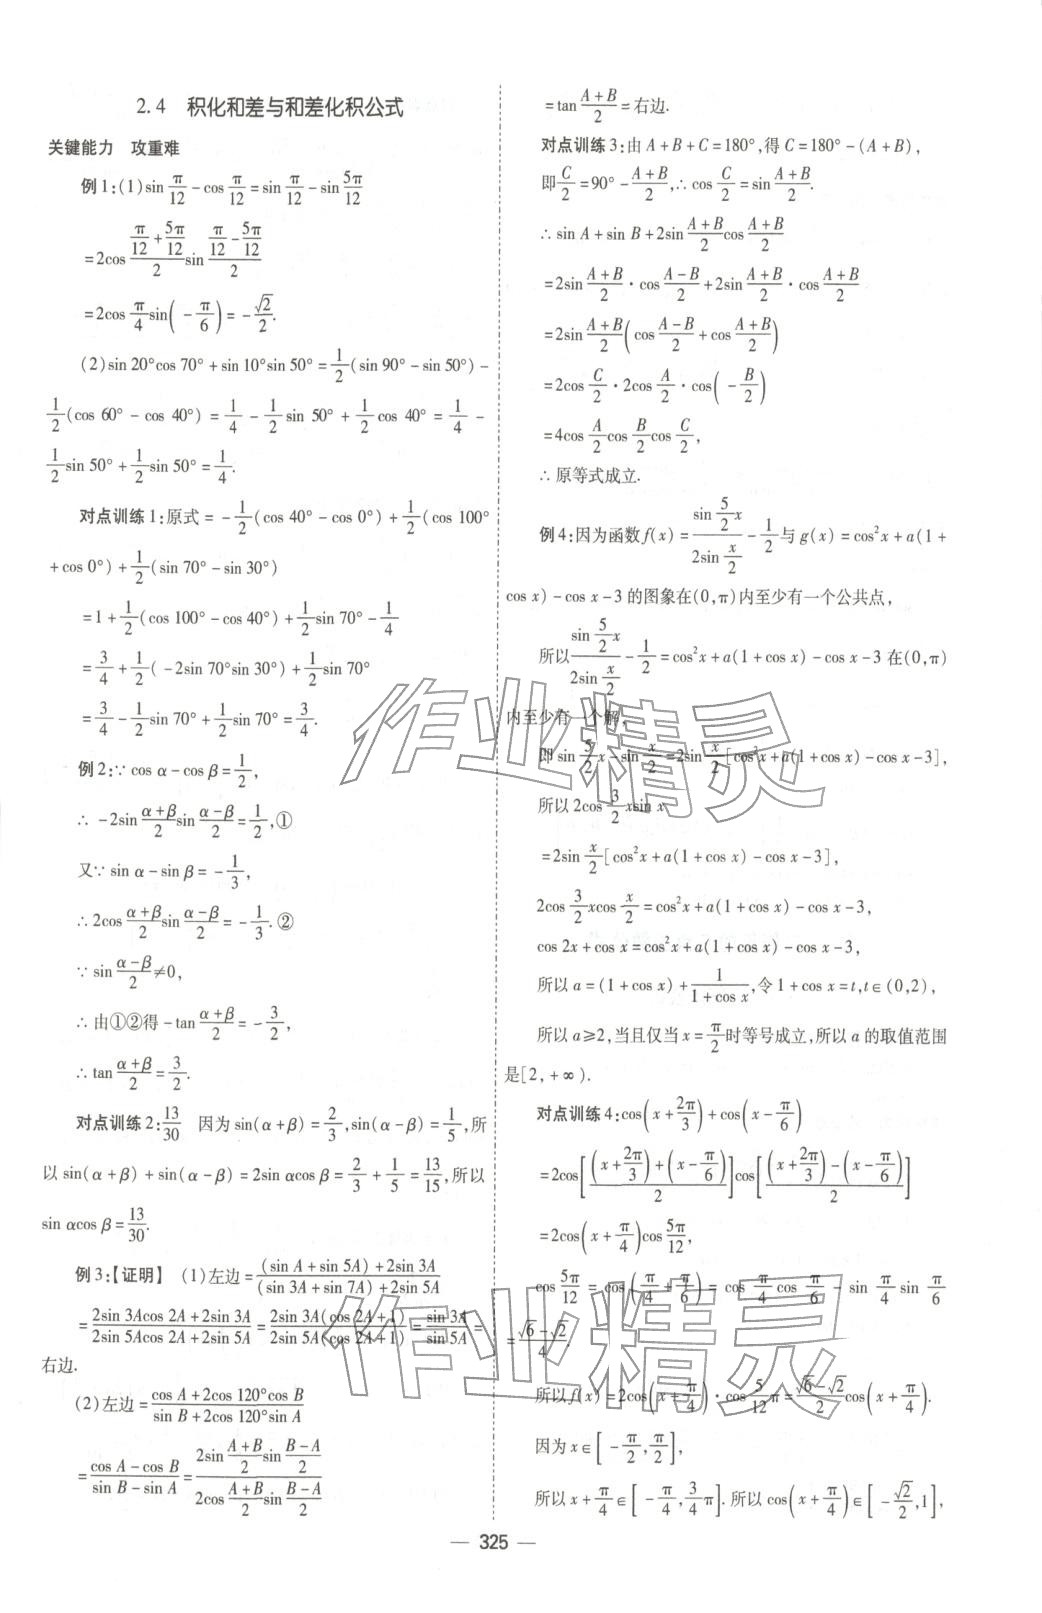 2.4 积化和差与和差化积公式
关键能力 攻重难
例1:(1)sin π/12 - cos π/12 = sin π/12 - sin 5π/12
=2cos (π/12+5π/12)/2 sin (π/12-5π/12)/2
=2cos π/4 sin(-π/6) = -√2/2.
(2)sin 20°cos 70° + sin 10°sin 50° = 1/2(sin 90° - sin 50°) -
1/2(cos 60° - cos 40°) = 1/4 - 1/2 sin 50° + 1/2 cos 40° = 1/4 -
1/2 sin 50° + 1/2 sin 50° = 1/4.
对点训练1:原式 = -1/2(cos 40° - cos 0°) + 1/2(cos 100°
+cos 0°) + 1/2(sin 70° - sin 30°)
=1+1/2(cos 100° - cos 40°) + 1/2 sin 70° - 1/4
=3/4+1/2(-2sin 70°sin 30°) + 1/2 sin 70°
=3/4-1/2 sin 70° + 1/2 sin 70° = 3/4.
例2:∵cos α-cos β=1/2,
∴ -2sin (α+β)/2 sin (α-β)/2 = 1/2,①
又∵sin α-sin β = -1/3,
∴2cos (α+β)/2 sin (α-β)/2 = -1/3.②
∵sin (α-β)/2≠0,
∴由①②得 -tan (α+β)/2 = -3/2,
∴tan (α+β)/2 = 3/2.
对点训练2:13/30 因为 sin(α+β) = 2/3,sin(α-β) = 1/5,所
以 sin(α+β) + sin(α-β) = 2sin αcos β = 2/3 + 1/5 = 13/15,所以
sin αcos β = 13/30.
例3:【证明】 (1)左边 = ((sin A+sin 5A)+2sin 3A)/((sin 3A+sin 7A)+2sin 5A)
=(2sin 3Acos 2A+2sin 3A)/(2sin 5Acos 2A+2sin 5A) = (2sin 3A(cos 2A+1))/(2sin 5A(cos 2A+1)) = sin 3A/sin 5A =
右边.
(2)左边 = (cos A+2cos 120°cos B)/(sin B+2cos 120°sin A)
=(cos A-cos B)/(sin B-sin A) = (2sin (A+B)/2 sin (B-A)/2)/(2cos (A+B)/2 sin (B-A)/2)
=tan (A+B)/2 = 右边.
对点训练3:由 A+B+C=180°,得 C=180°-(A+B),
即 C/2 = 90° - (A+B)/2,∴cos C/2 = sin (A+B)/2.
∴sin A+sin B+2sin (A+B)/2 cos (A+B)/2
=2sin (A+B)/2·cos (A-B)/2+2sin (A+B)/2·cos (A+B)/2
=2sin (A+B)/2(cos (A-B)/2+cos (A+B)/2)
=2cos C/2·2cos A/2·cos(-B/2)
=4cos A/2 cos B/2 cos C/2,
∴原等式成立.
例4:因为函数f(x) = (sin 5/2 x)/(2sin x/2) - 1/2 与 g(x) = cos²x+a(1+
cos x)-cos x-3 的图象在(0,π)内至少有一个公共点,
所以 (sin 5/2 x)/(2sin x/2) - 1/2 = cos²x+a(1+cos x)-cos x-3 在(0,π)
内至少有一个解,
即 sin 5/2 x-sin x/2 = 2sin x/2[cos²x+a(1+cos x)-cos x-3],
所以 2cos 3/2 xsin x
=2sin x/2[cos²x+a(1+cos x)-cos x-3],
2cos 3/2 xcos x/2 = cos²x+a(1+cos x)-cos x-3,
cos 2x+cos x=cos²x+a(1+cos x)-cos x-3,
所以 a=(1+cos x)+1/(1+cos x),令 1+cos x=t,t∈(0,2),
所以 a≥2,当且仅当 x=π/2 时等号成立,所以 a 的取值范围
是[2,+∞).
对点训练4:cos(x+2π/3)+cos(x-π/6)
=2cos[((x+2π/3)+(x-π/6))/2]cos[((x+2π/3)-(x-π/6))/2]
=2cos(x+π/4)cos 5π/12,
cos 5π/12 = cos(π/4+π/6) = cos π/4 cos π/6 - sin π/4 sin π/6
=(√6-√2)/4.
所以f(x)=2cos(x+π/4)·cos 5/12 π=(√6-√2)/2 cos(x+π/4).
因为 x∈[-π/2,π/2],
所以 x+π/4∈[-π/4,3/4 π].所以 cos(x+π/4)∈[-√2/2,1],
— 325 —
作业精灵
作业精灵